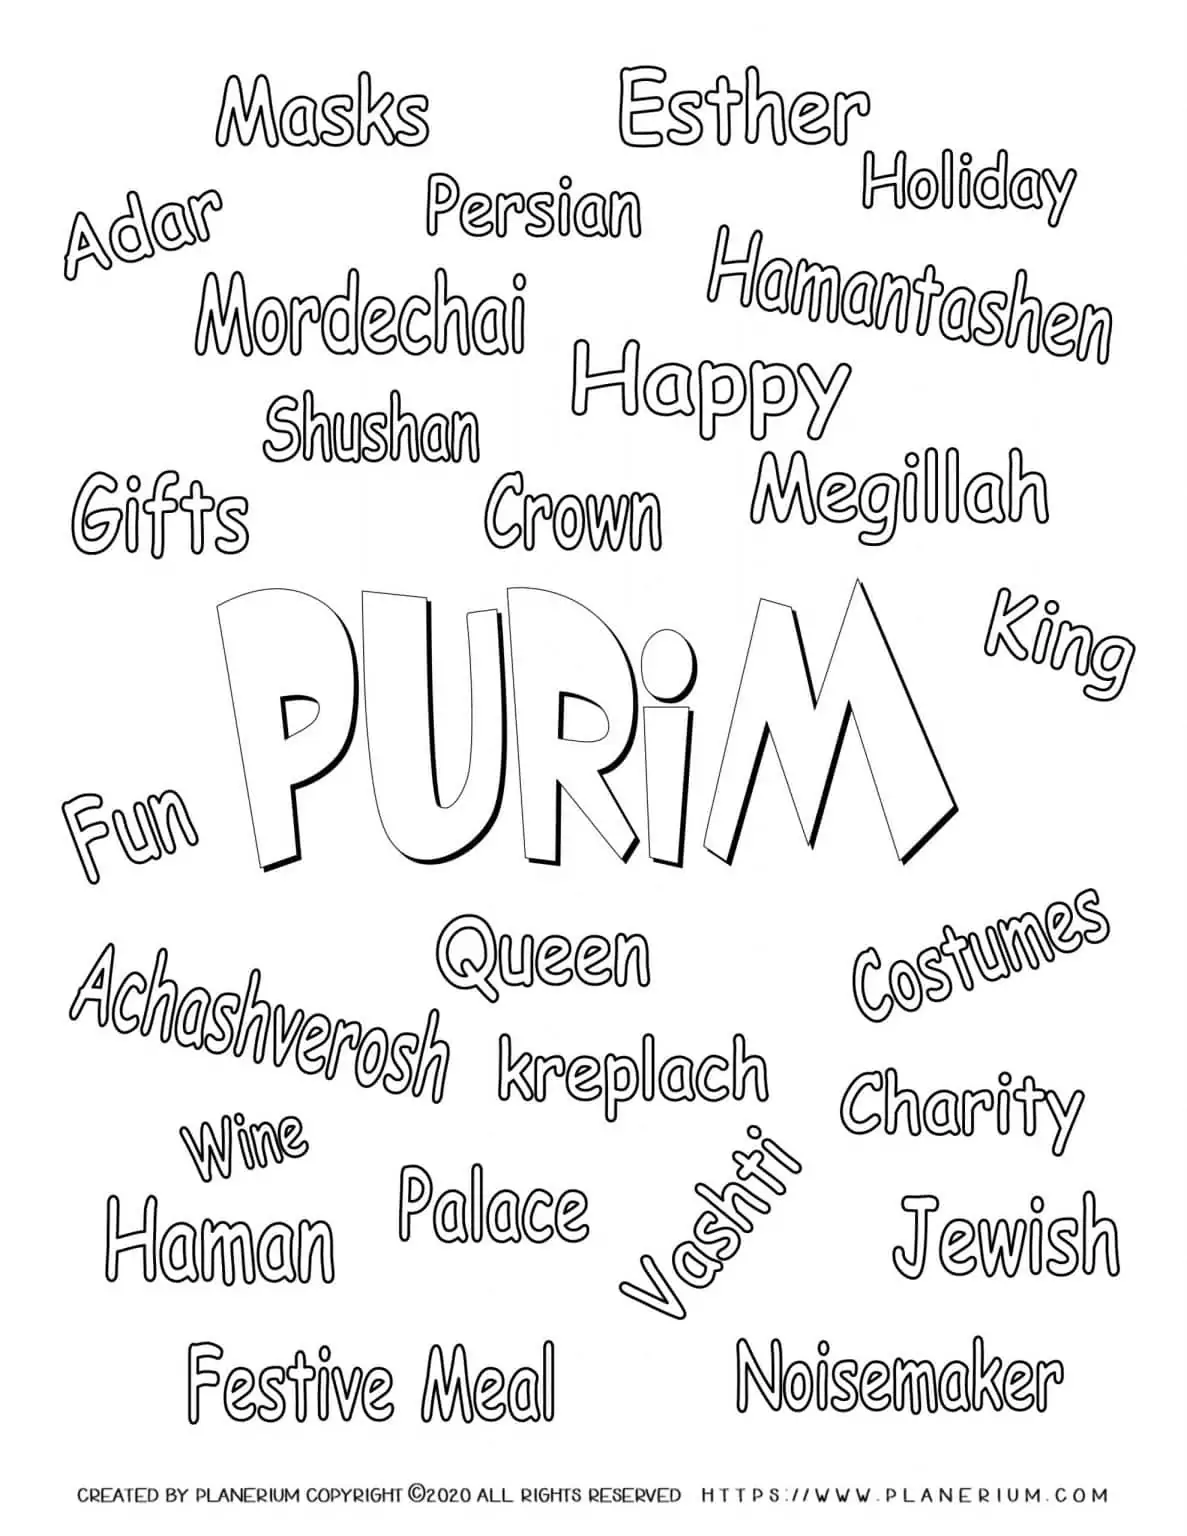 Masks
Esther
Holiday
Adar
Persian
Hamantashen
Mordechai
Happy
Shushan
Gifts
Crown
Megillah
PURiM
King
Fun
Queen
Costumes
Achashverosh
kreplach
Charity
Wine
Palace
Vashti
Haman
Jewish
Festive Meal
Noisemaker
CREATED BY PLANERIUM COPYRIGHT ©2020 ALL RIGHTS RESERVED HTTPS://WWW.PLANERIUM.COM